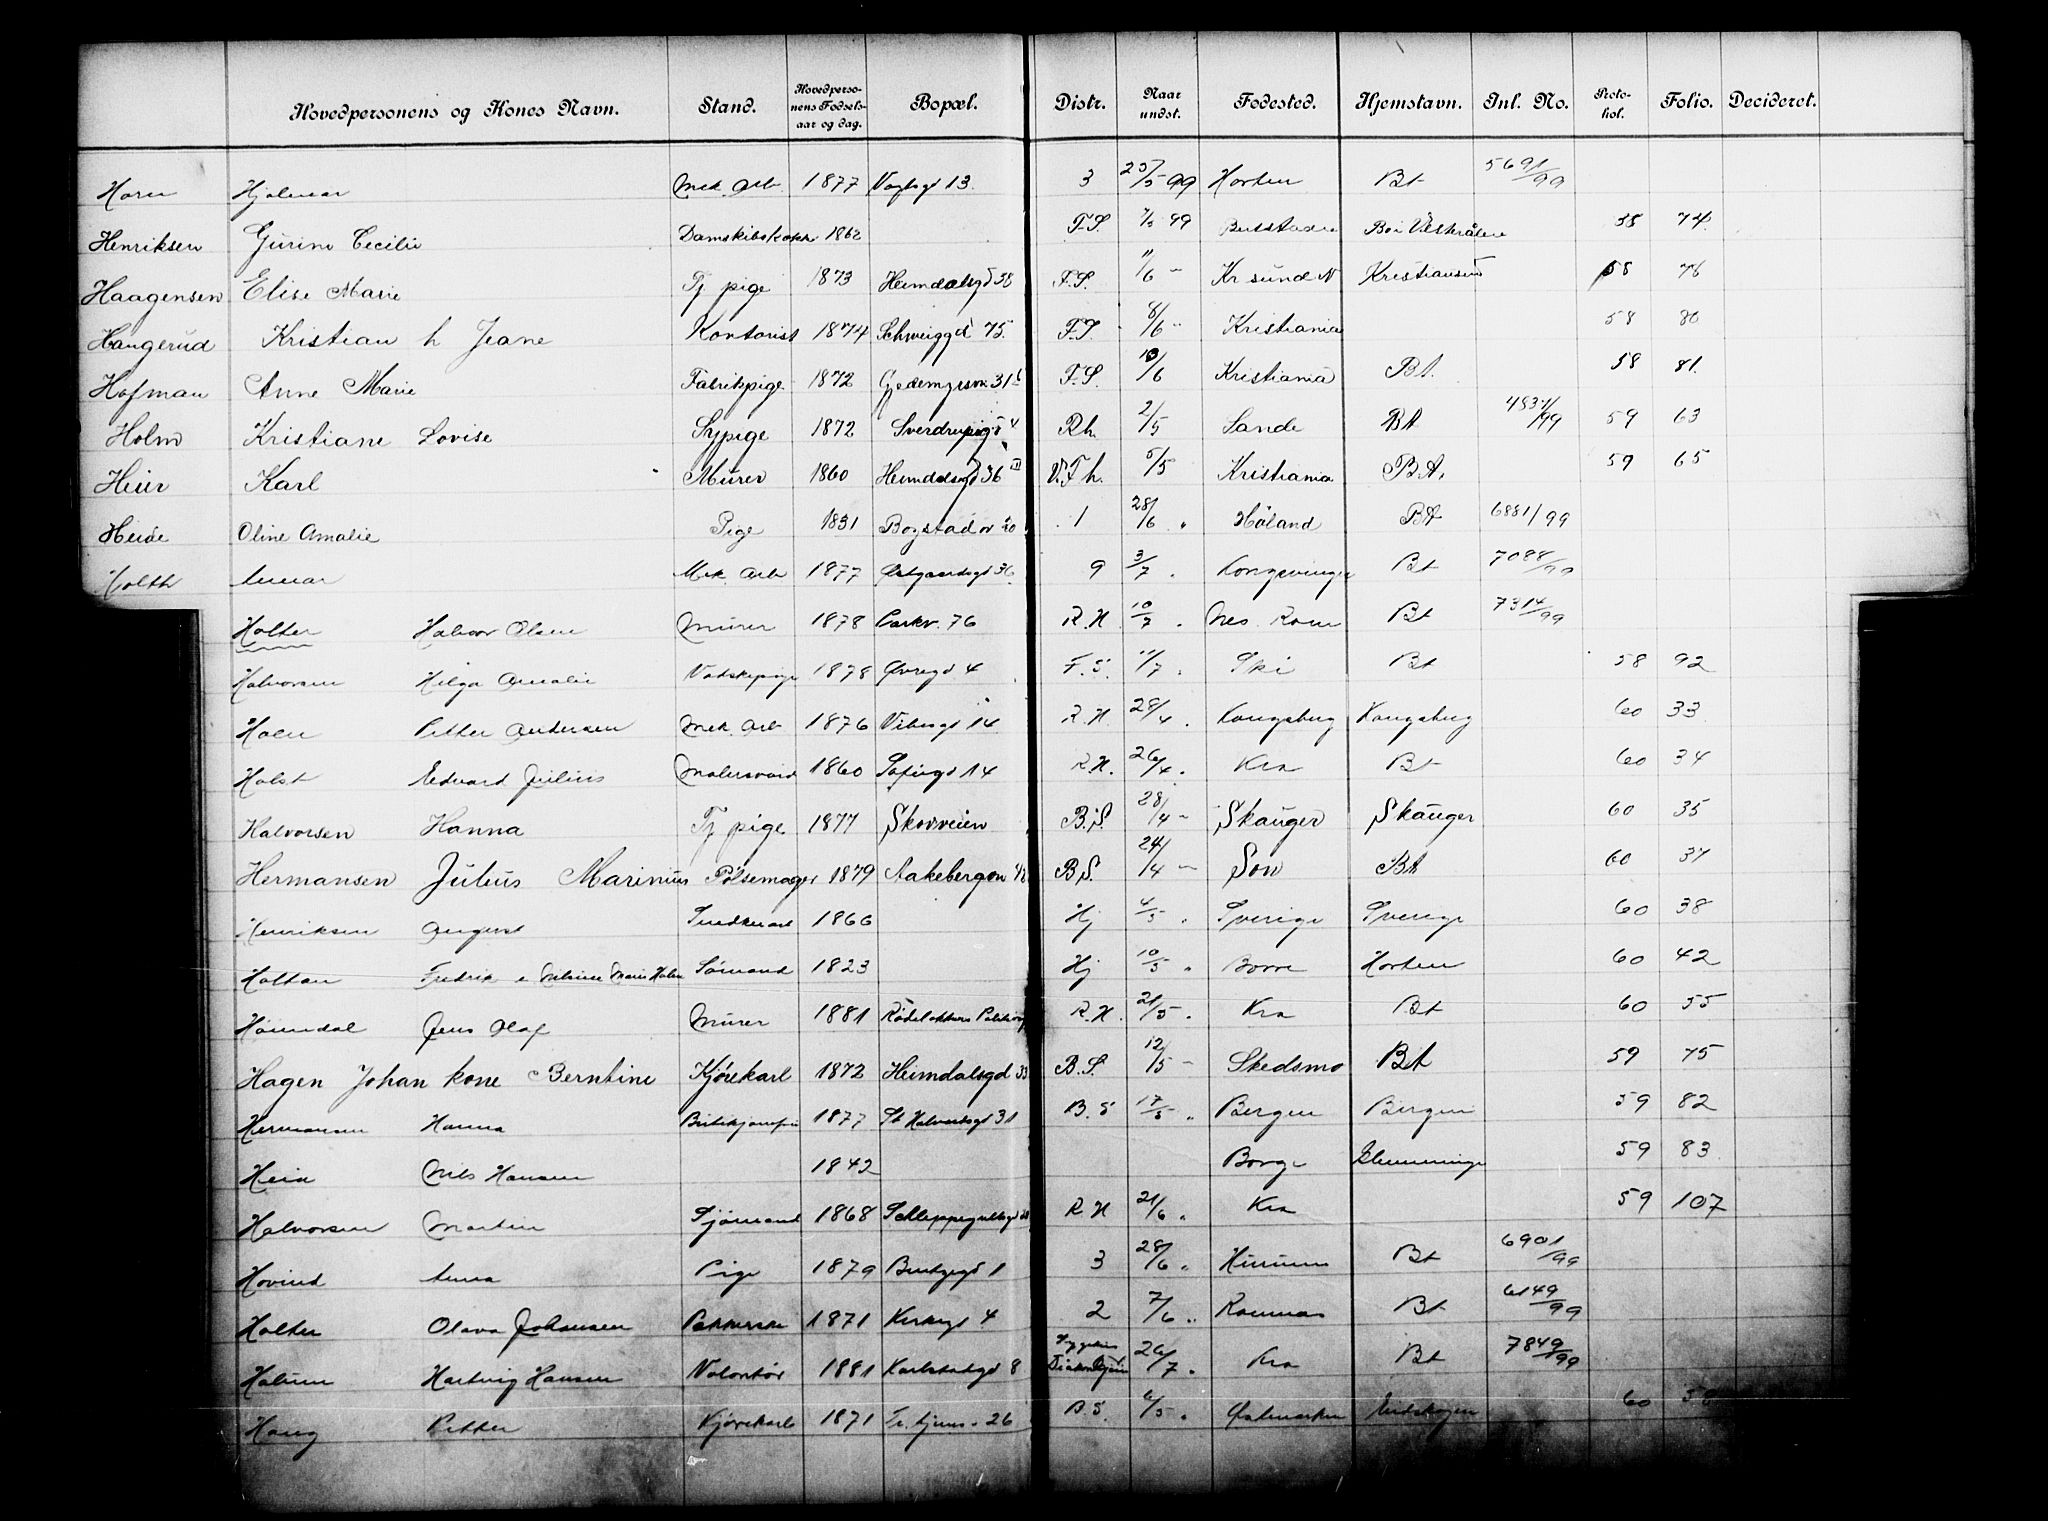 Hovedpersonens og Kones Navn. Stand. Hovedpersonens Fødselsaar og dag. Bopæl. Distr. Naar undst. Fødested. Hjemstavn. Inl. No. Protokol. Folio. Decideret.
Horn Hjalmar Mek. Arb. 1877 Vogtsgd 13. 3 25/5 99 Horten Bt 5691/99
Henriksen Gurine Cecilie 1862 F.S. 99 Bø i Vesterålen 58 74.
Haagensen Elise Marie Tj pige 1873 Heimdalsgd 38 F.S. 11/6 - Kr sund N Kristiansund 58 76
Haugerud Kristian h Jeane Kontorist 1874 Schweiggd 75. F.S. 8/6 - Kristiania 58 80
Hofman Anne Marie Fabrikpige 1872 31 F.S. 10/6 Kristiania Bt. 58 81.
Holm Kristiane Lovise Sypige 1872 Sverdrupsgd 4 Rh. 2/5 Sande Bt 4834/99 59 63
Heier Karl Murer 1860 Heimdalsgd 36 III V.F.h. 5/5 Kristiania B.A. 59 65
Heide Oline Amalie Pige 1831 Bogstadv 20 1 28/6 " Høland Bt 6881/99
Holth Mek. Arb 1877 Østgaardsgd 36. 9 3/7 . Kongsvinger Bt 7088/99
Holter Halvor Olsen Murer 1878 Parkv. 76 R.H. 10/7 . Nes. Rom Bt 7314/99
Halvorsen Helga Amalie Vadskepige 1878 Øvregd 4 F.S. 11/7 . Ski Bt 58 92
Holm Petter Andersen Mek. Arb 1876 Vibesgd 14. R.H. 28/4 . Kongsberg Kongsberg 60 33.
Holst Edvard Julius Malersvend 1860 Sofiegd 14 R.H. 26/4 . Kra Bt 60 34
Halvorsen Hanna Tj pige 1877 Skovveien B.S. 28/4 - Skauger Skauger 60 35
Hermansen Julius Marinius Pølsemager 1879 Aakebergvn B.S. 24/4 - Son Bt 60 37
Henriksen August 1866 Hj 4/5 . Sverige Sverige 60 38
Holtan Fredrik e Marie Holm Sømand 1823 Hj 10/5 " Borre Horten 60 42
Heimdal Jens Olaf Murer 1881 R.H. 21/5 . Kra Bt 60 55
Hagen Johan kone Berntine Kjørekarl 1872 Heimdalsgd 33 B.S. 12/5 - Skedsmo Bt 59 75
Hermansen Hanna 1877 St Halvardsgd 31 B.S 17/5 . Bergen Bergen 59 82
Hein Nils Hansen 1842 Borge Glemminge 59 83.
Halvorsen Martin Sjømand 1868 Schleppegrellsgd R H 21/6 . Kra 59 107
Hovind Anna Pige 1879 Bentzegd 1 3 28/6 . Hurum Bt 6901/99
Holter Olava Johansen 1871 Kirkegd 4 2 7/6 " Romnes Bt 6149/99
Holum Hartvig Hansen Volontør 1881 Karlstadgd 8 26/7 . Kra Bt 7849/99
Haug Petter Kjørekarl 1871 26 B.S. 6/5 . Østmarken Eidskogen 60 58